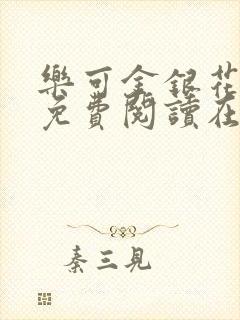 樂可金銀花
免費閱讀在
秦三見